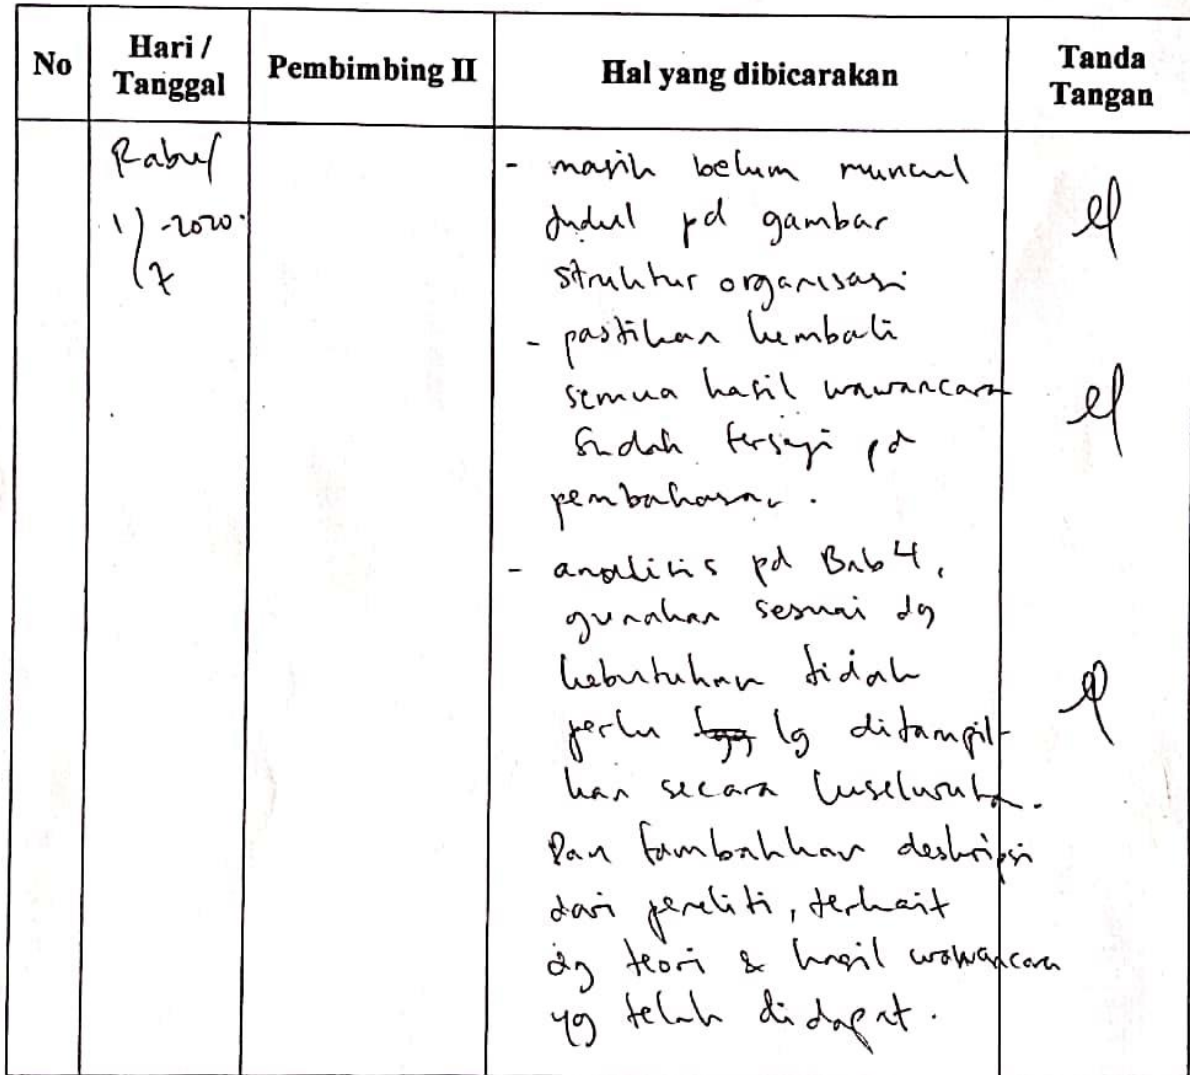 No
Hari /
Tanggal
Pembimbing II
Hal yang dibicarakan
Tanda
Tangan
Rabu/
1/7-2020.
- masih belum muncul
Judul pd gambar
struktur organisasi
- pastikan kembali
semua hasil wawancara
sudah tersaji pd
pembahasan.
- analisis pd Bab 4,
gunakan sesuai dg
kebutuhan tidak
perlu lg ditampil-
kan secara keseluruhan.
Dan tambahkan deskripsi
dari peneliti, terkait
dg teori & hasil wawancara
yg telah didapat.